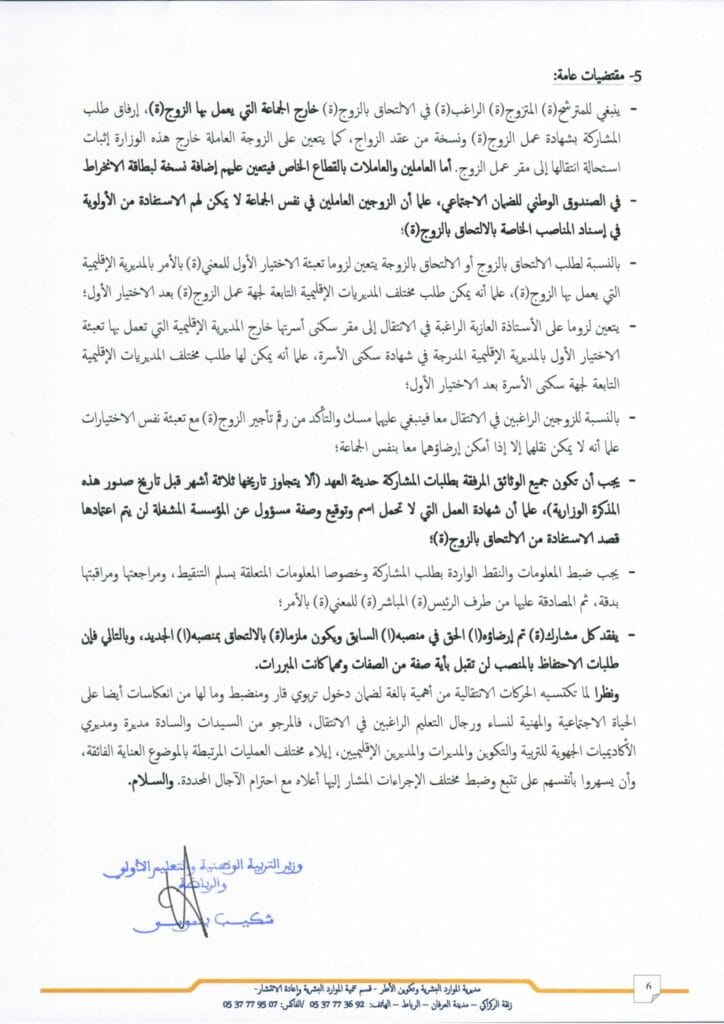 5- مقتضيات عامة:
- ينبغي للمترشح(ة) المتزوج(ة) الراغب(ة) في الالتحاق بالزوج(ة) خارج الجماعة التي يعمل بها الزوج(ة)، إرفاق طلب
المشاركة بشهادة عمل الزوج(ة) ونسخة من عقد الزواج، كما يتعين على الزوجة العاملة خارج هذه الوزارة إثبات
استحالة انتقالها إلى مقر عمل الزوج. أما العاملين والعاملات بالقطاع الخاص فيتعين عليهم إضافة نسخة لبطاقة الانخراط
- في الصندوق الوطني للضمان الاجتماعي، علما أن الزوجين العاملين في نفس الجماعة لا يمكن لهم الاستفادة من الأولوية
في إسناد المناصب الخاصة بالالتحاق بالزوج(ة)؛
- بالنسبة لطلب الالتحاق بالزوج أو الالتحاق بالزوجة يتعين لزوما تعبئة الاختيار الأول للمعني(ة) بالأمر بالمديرية الإقليمية
التي يعمل بها الزوج(ة)، علما أنه يمكن طلب مختلف المديريات الإقليمية التابعة لجهة عمل الزوج(ة) بعد الاختيار الأول؛
- يتعين لزوما على الأستاذة العازبة الراغبة في الانتقال إلى مقر سكنى أسرتها خارج المديرية الإقليمية التي تعمل بها تعبئة
الاختيار الأول بالمديرية الإقليمية المدرجة في شهادة سكنى الأسرة، علما أنه يمكن لها طلب مختلف المديريات الإقليمية
التابعة لجهة سكنى الأسرة بعد الاختيار الأول؛
- بالنسبة للزوجين الراغبين في الانتقال معا فينبغي عليهما مسك والتأكد من رقم تأجير الزوج(ة) مع تعبئة نفس الاختيارات
علما أنه لا يمكن نقلهما إلا إذا أمكن إرضاؤهما معا بنفس الجماعة؛
- يجب أن تكون جميع الوثائق المرفقة بطلبات المشاركة حديثة العهد (ألا يتجاوز تاريخها ثلاثة أشهر قبل تاريخ صدور هذه
المذكرة الوزارية)، علما أن شهادة العمل التي لا تحمل اسم وتوقيع وصفة مسؤول عن المؤسسة المشغلة لن يتم اعتمادها
قصد الاستفادة من الالتحاق بالزوج(ة)؛
- يجب ضبط المعلومات والنقط الواردة بطلب المشاركة وخصوصا المعلومات المتعلقة بسلم التنقيط، ومراجعتها ومراقبتها
بدقة، ثم المصادقة عليها من طرف الرئيس(ة) المباشر(ة) للمعني(ة) بالأمر؛
- يفقد كل مشارك(ة) تم إرضاؤه(ا) الحق في منصبه(ا) السابق ويكون ملزما(ة) بالالتحاق بمنصبه(ا) الجديد، وبالتالي فإن
طلبات الاحتفاظ بالمنصب لن تقبل بأية صفة من الصفات ومهما كانت المبررات.
ونظرا لما تكتسيه الحركات الانتقالية من أهمية بالغة لضمان دخول تربوي قار ومنضبط وما لها من انعكاسات أيضا على
الحياة الاجتماعية والمهنية لنساء ورجال التعليم الراغبين في الانتقال، فالمرجو من السيدات والسادة مديرة ومديري
الأكاديميات الجهوية للتربية والتكوين والمديرات والمديرين الإقليميين، إيلاء مختلف العمليات المرتبطة بالموضوع العناية الفائقة،
وأن يسهروا بأنفسهم على تتبع وضبط مختلف الإجراءات المشار إليها أعلاه مع احترام الآجال المحددة. والسلام.
وزير التربية الوطنية والتعليم الأولي
والرياضة
شكيب بنموسى
مديرية الموارد البشرية وتكوين الأطر - قسم تنمية الموارد البشرية وإعادة الانتشار-
زنقة الركراكي – مدينة العرفان – الرباط – الهاتف: 92 36 77 37 05 /الفاكس: 07 95 77 37 05
6